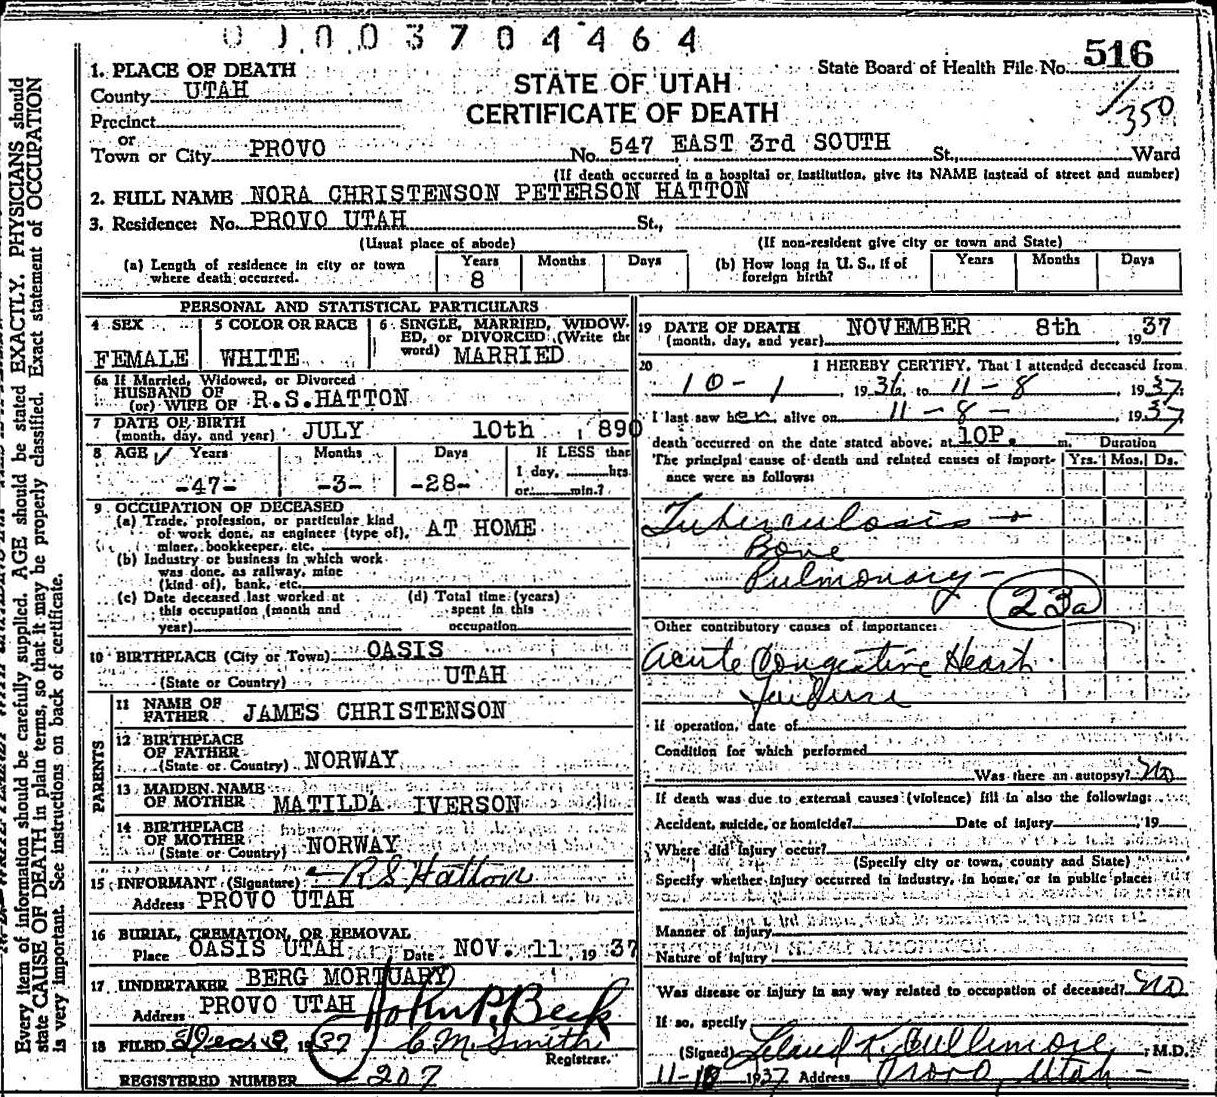 01003704464
516
1. PLACE OF DEATH
STATE OF UTAH
State Board of Health File No. 516
County UTAH
CERTIFICATE OF DEATH
1/350
Precinct
or
Town or City PROVO No. 547 EAST 3rd SOUTH St., Ward
(If death occurred in a hospital or institution, give its NAME instead of street and number)
2. FULL NAME NORA CHRISTENSON PETERSON HATTON
3. Residence: No. PROVO UTAH St.,
(Usual place of abode) (If non-resident give city or town and State)
(a) Length of residence in city or town where death occurred. Years 8 Months Days
(b) How long in U. S., if of foreign birth? Years Months Days
PERSONAL AND STATISTICAL PARTICULARS
4 SEX FEMALE
5 COLOR OR RACE WHITE
6 SINGLE, MARRIED, WIDOWED, or DIVORCED (Write the word) MARRIED
6a If Married, Widowed, or Divorced
HUSBAND OF
(or) WIFE OF R.S.HATTON
7 DATE OF BIRTH
(month, day, and year) JULY 10th, 890
8 AGE Years -47- Months -3- Days -28- If LESS than 1 day, hrs. or min.?
9 OCCUPATION OF DECEASED
(a) Trade, profession, or particular kind of work done, as engineer (type of), miner, bookkeeper, etc. AT HOME
(b) Industry or business in which work was done, as railway, mine (kind of), bank, etc.
(c) Date deceased last worked at this occupation (month and year)
(d) Total time (years) spent in this occupation
10 BIRTHPLACE (City or Town) OASIS
(State or Country) UTAH
PARENTS
11 NAME OF FATHER JAMES CHRISTENSON
12 BIRTHPLACE OF FATHER
(State or Country) NORWAY
13 MAIDEN NAME OF MOTHER MATILDA IVERSON
14 BIRTHPLACE OF MOTHER
(State or Country) NORWAY
15 INFORMANT (Signature) R S Hatton
Address PROVO UTAH
16 BURIAL, CREMATION, OR REMOVAL
Place OASIS UTAH Date NOV. 11, 1937
17 UNDERTAKER BERG MORTUARY
Address PROVO UTAH John P. Beck
18 FILED Dec 8, 1937 C M Smith
Registrar.
REGISTERED NUMBER 207
19 DATE OF DEATH NOVEMBER 8th
(month, day, and year) , 1937
20 I HEREBY CERTIFY, That I attended deceased from
10-1, 1936, to 11-8, 1937
I last saw her alive on 11-8-, 1937
death occurred on the date stated above, at 10P. m.
The principal cause of death and related causes of importance were as follows:
Duration Yrs. Mos. Ds.
Tuberculosis
Bone
Pulmonary
23a
Other contributory causes of importance:
Acute Congestive Heart
Failure
If operation, date of
Condition for which performed
Was there an autopsy? No
If death was due to external causes (violence) fill in also the following:
Accident, suicide, or homicide? Date of injury , 19
Where did injury occur?
(Specify city or town, county and State)
Specify whether injury occurred in industry, in home, or in public place:
Manner of injury
Nature of injury
Was disease or injury in any way related to occupation of deceased? No
If so, specify
(Signed) Leland K. Cullimore, M.D.
11-10 1937 Address Provo, Utah
Every item of information should be carefully supplied. AGE should be stated EXACTLY. PHYSICIANS should
state CAUSE OF DEATH in plain terms, so that it may be properly classified. Exact statement of OCCUPATION
is very important. See instructions on back of certificate.